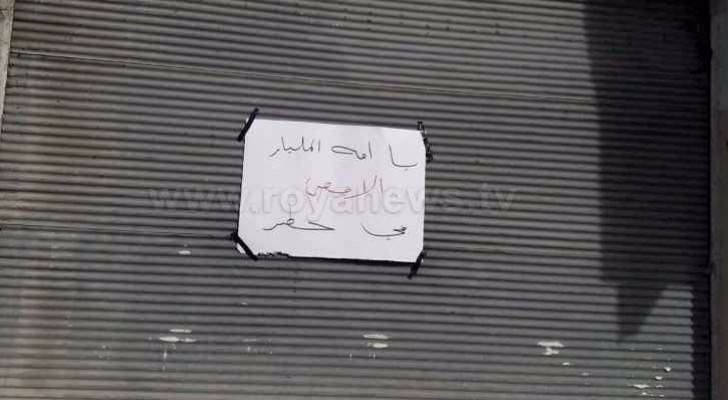 يا امة المليار
الاقصى
في خطر
www.royanews.tv